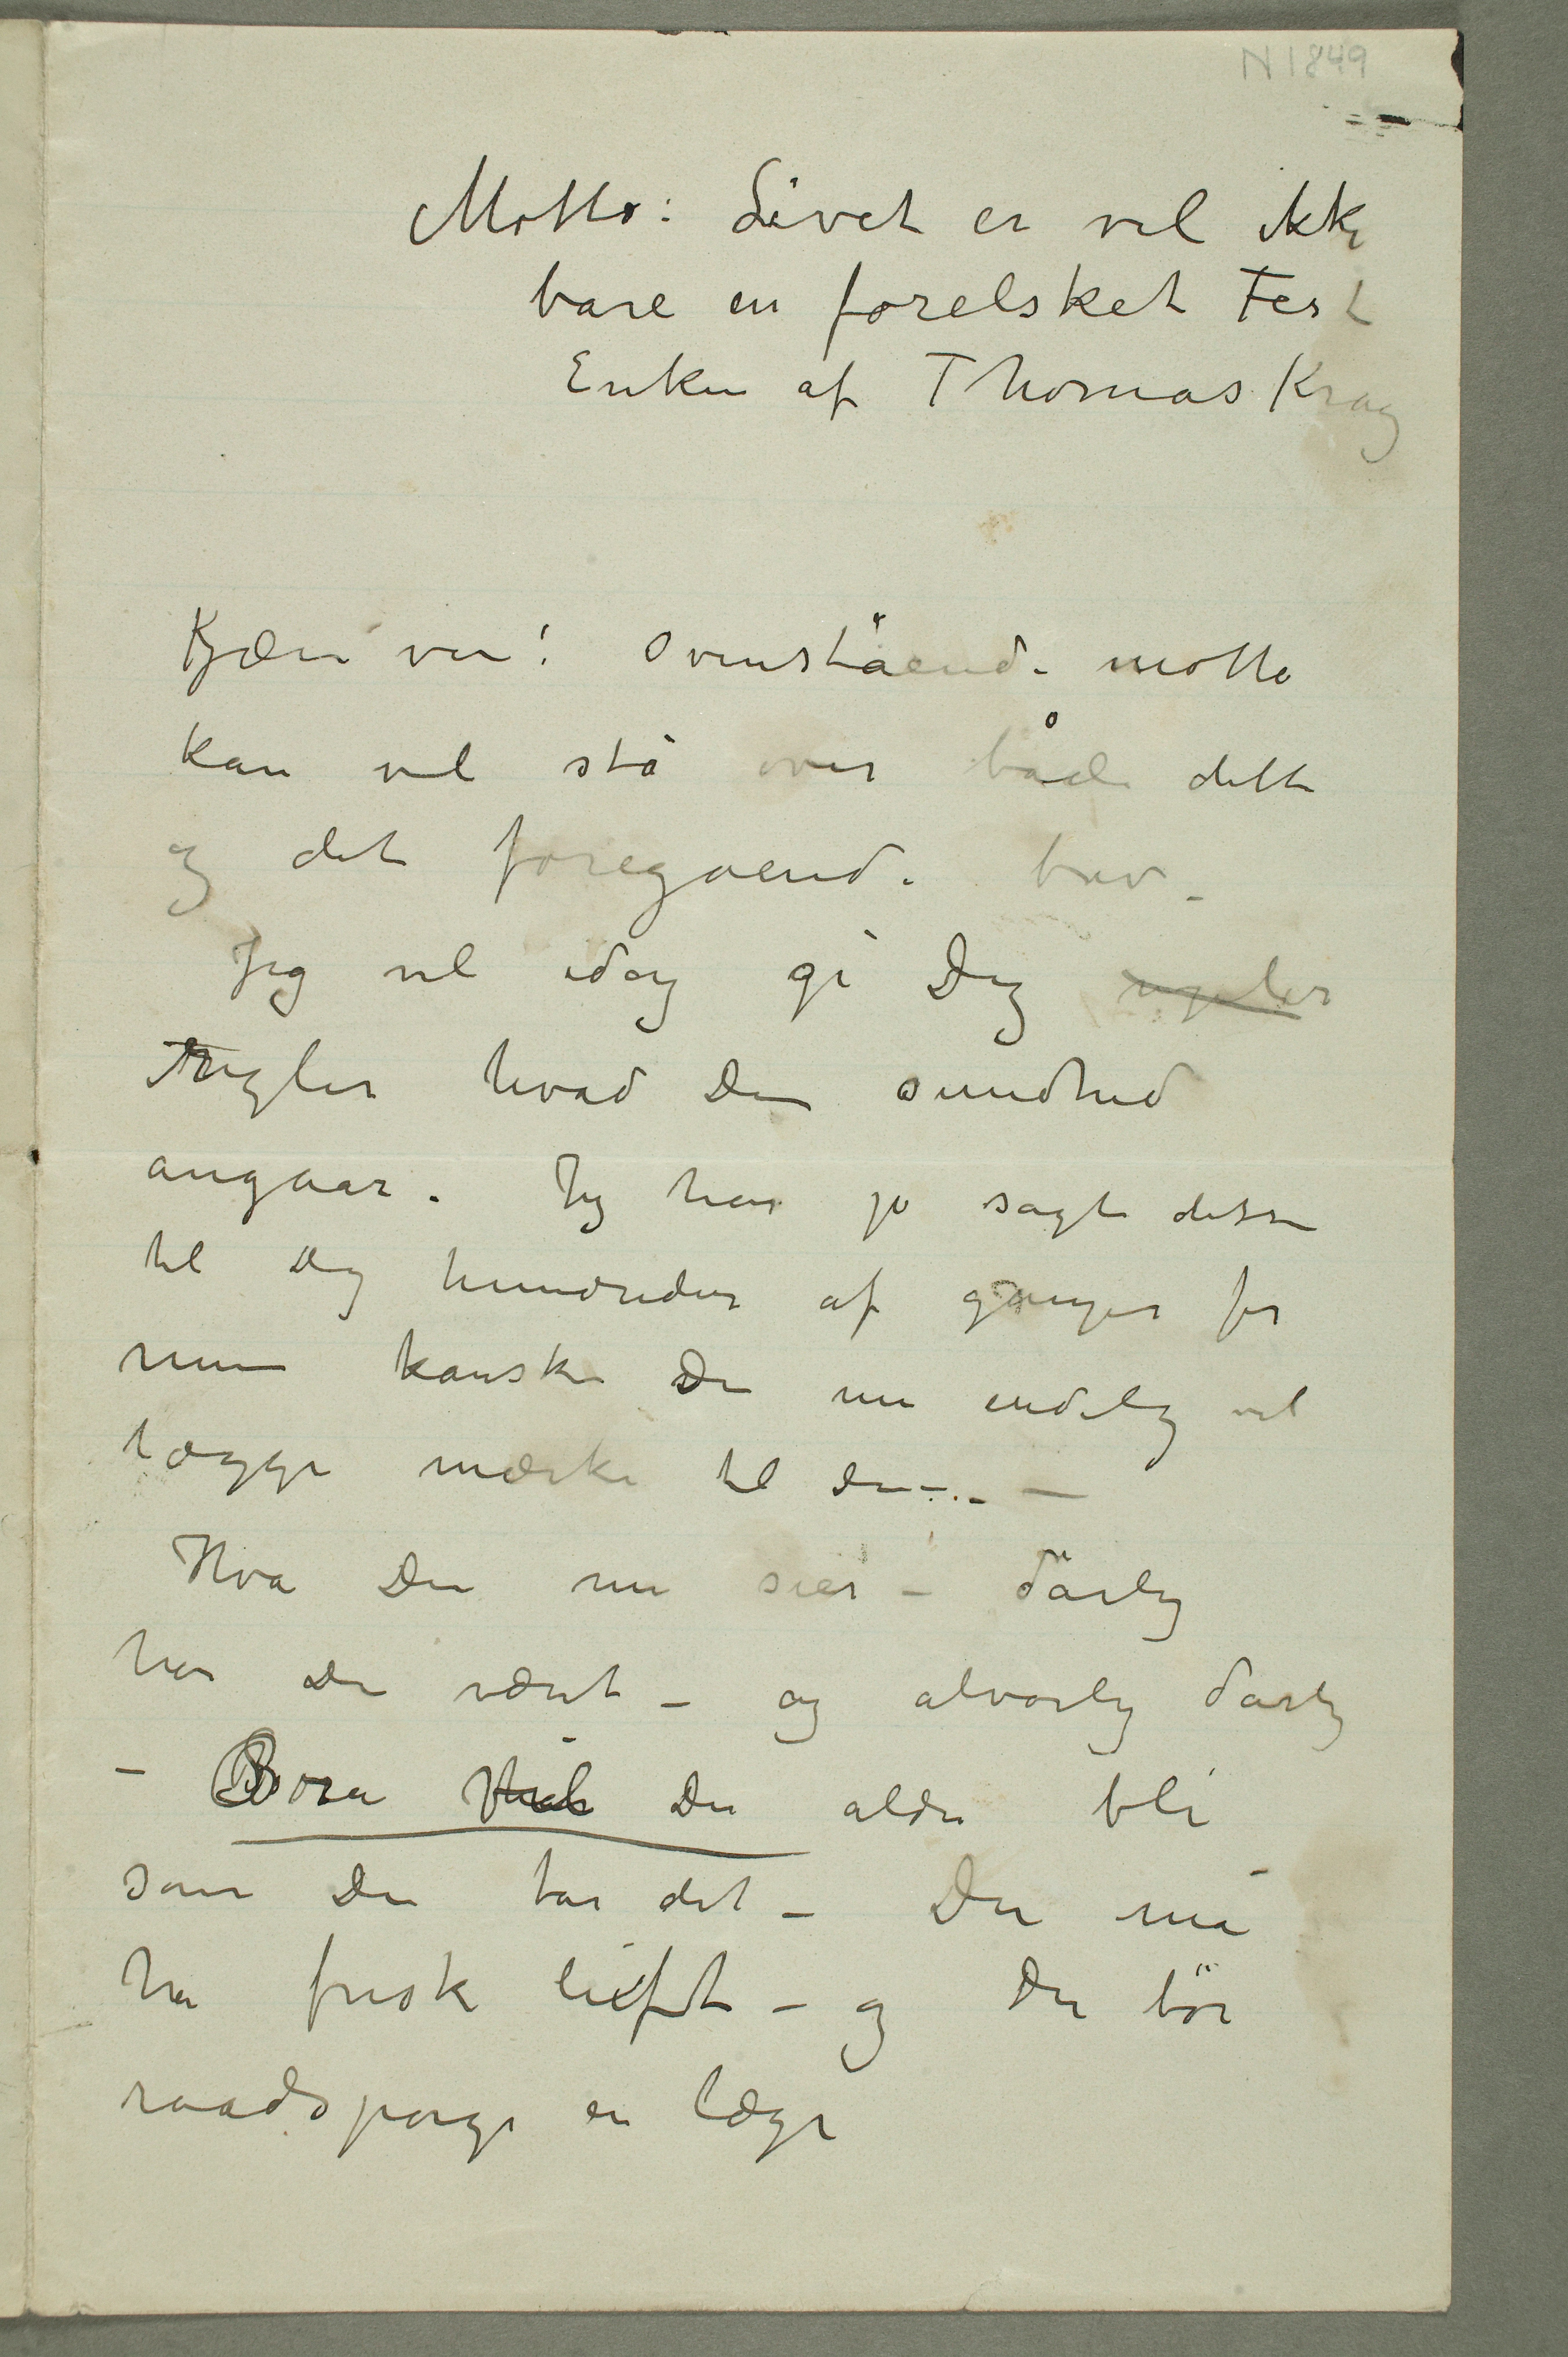 N 1849
Motto: Livet er vel ikke
bare en forelsket Fest
Enken af Thomas Krag
Kjære ven! Ovenstående motto
kan vel stå over både dette
og det foregående brev_
Jeg vil idag gi Dig regler
Regler hvad Din sundhed
angaar. Jeg har jo sagt disse
til Dig hundreder af ganger før
men kanske Du nu endelig vil
lægge mærke til dem. –
Hva Du nu sier – dårlig
har Du været – og alvorlig dårlig
– Bora vil Du aldri bli
som Du tar det – Du må
ha frisk luft – og Du bör
raadspørge en læge